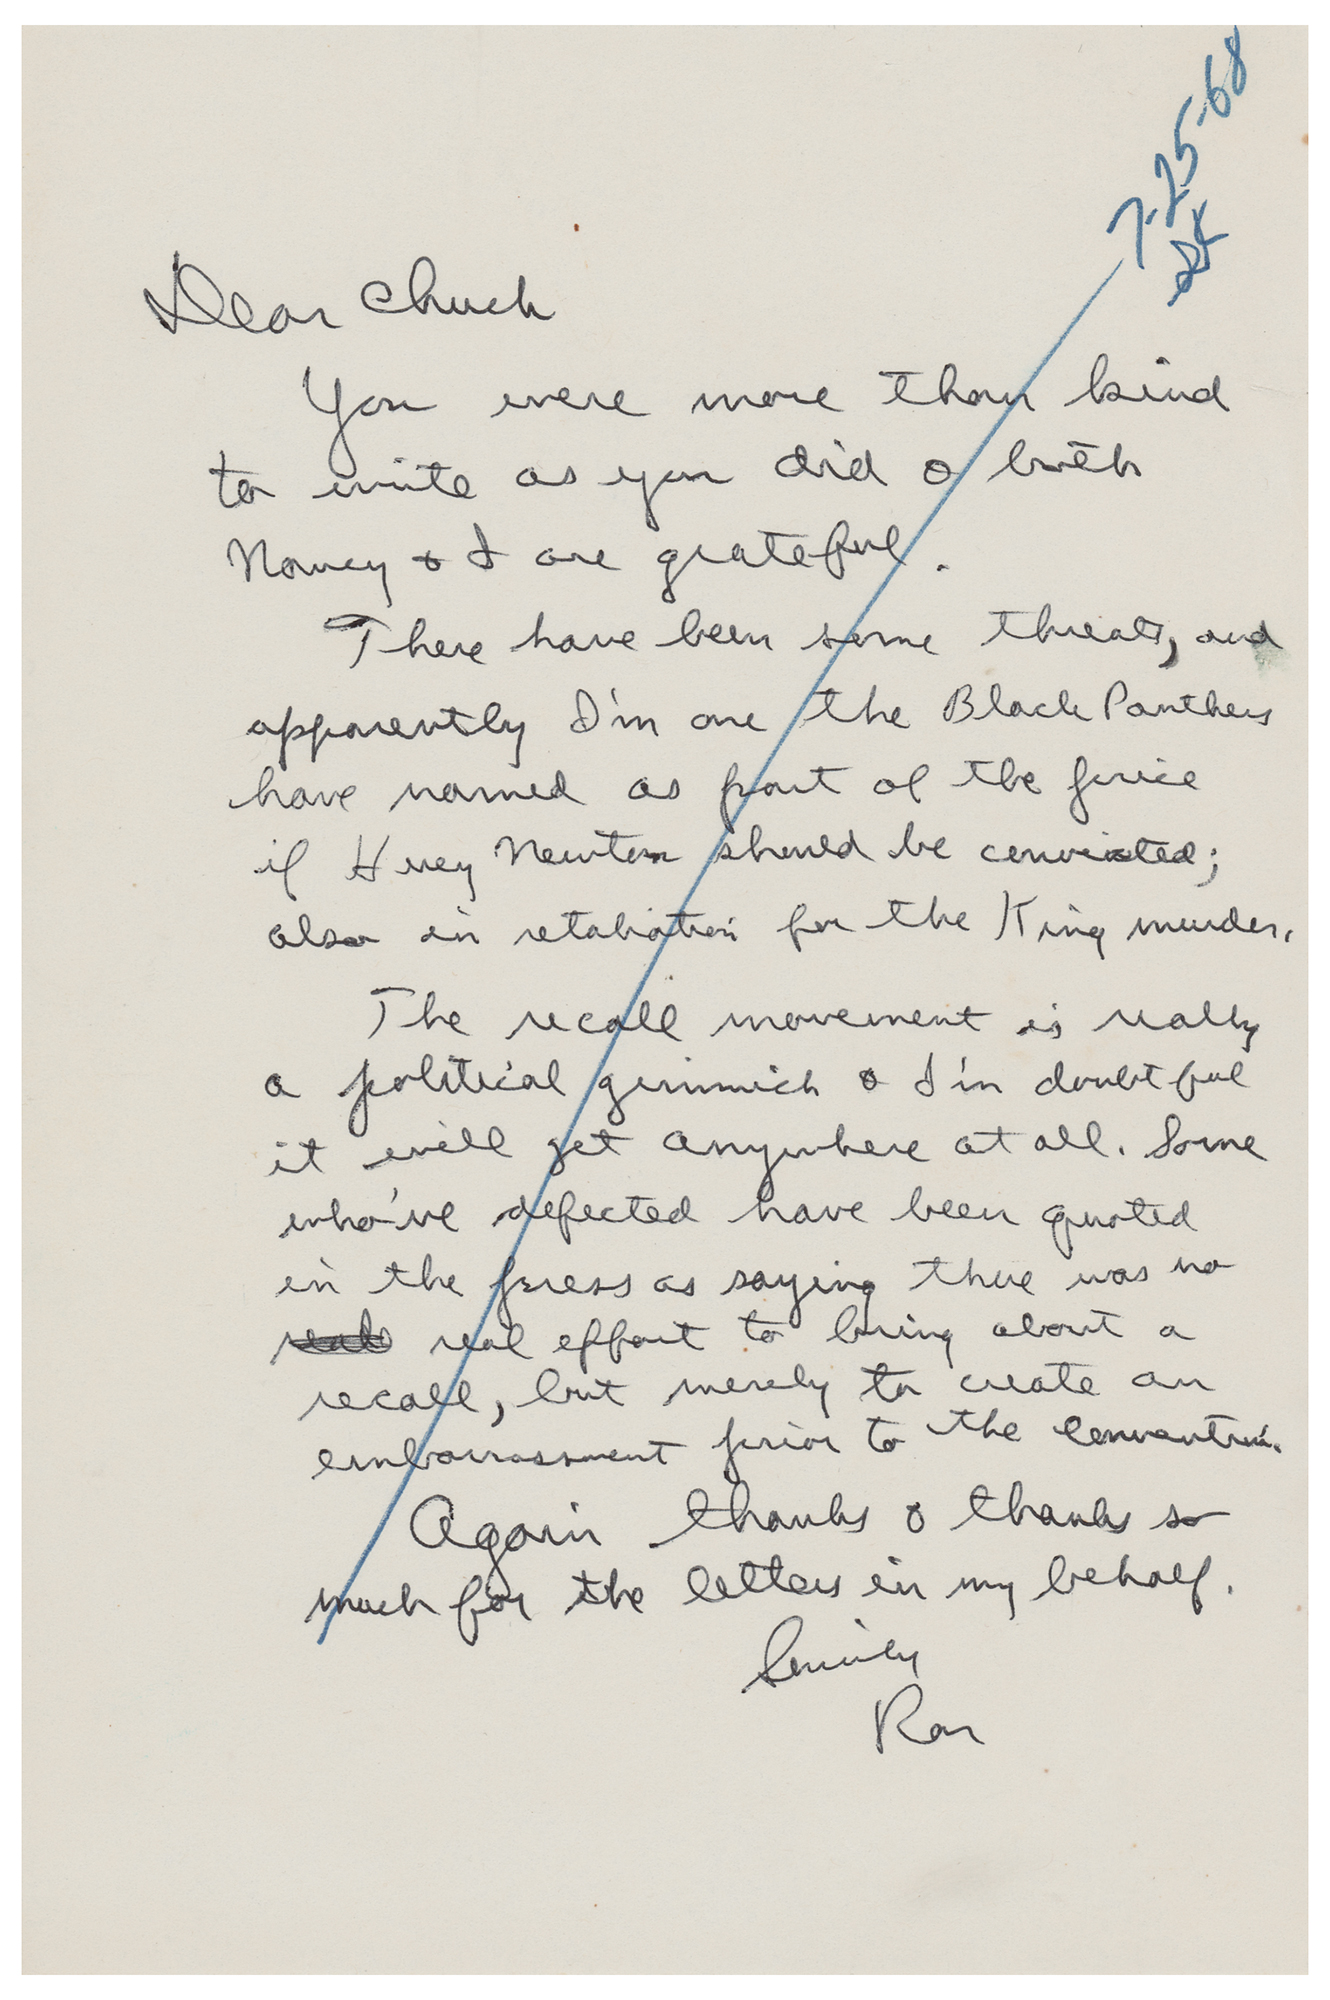 7-25-68
Dear Chuck
You were more than kind
to write as you did & both
Nancy & I are grateful.
There have been some threats, and
apparently I'm one the Black Panthers
have named as part of the price
if Huey Newton should be convicted;
also in retaliation for the King murder.
The recall movement is really
a political gimmich & I'm doubtful
it will get anywhere at all. Some
who've defected have been quoted
in the press as saying there was no
real effort to bring about a
recall, but merely to create an
embarrassment prior to the convention.
Again thanks & thanks so
much for the letters in my behalf.
Sincerely
Ron